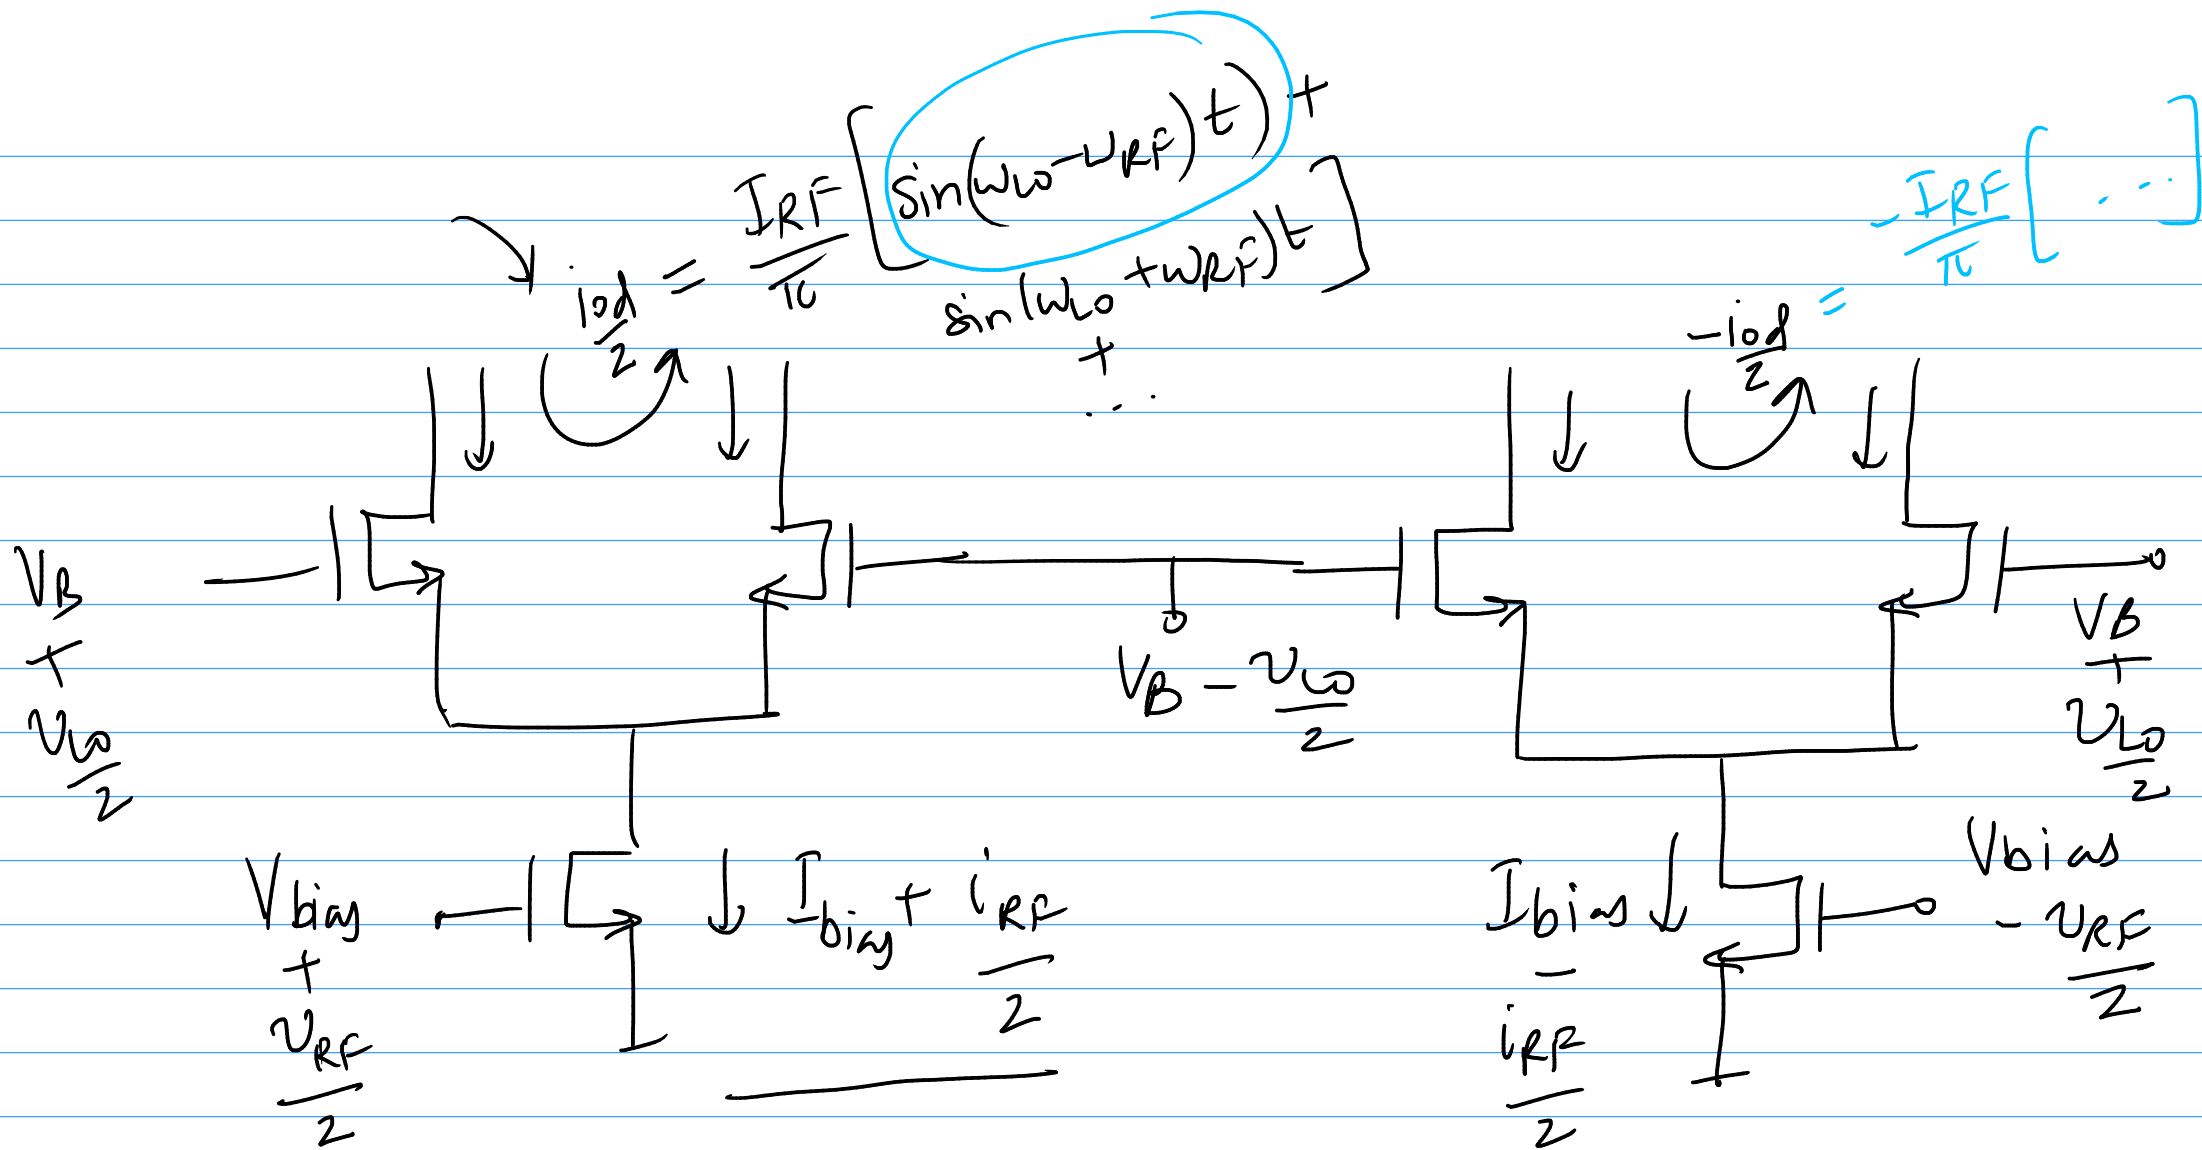 iod/2 = I_RF/π [sin(ω_LO - ω_RF)t) + sin(ω_LO + ω_RF)t] + ...
-iod/2 = -I_RF/π [...]
V_B + v_LO/2
V_B - v_LO/2
V_B + v_LO/2
V_bias + v_RF/2
I_bias + i_RF/2
I_bias - i_RF/2
V_bias - v_RF/2